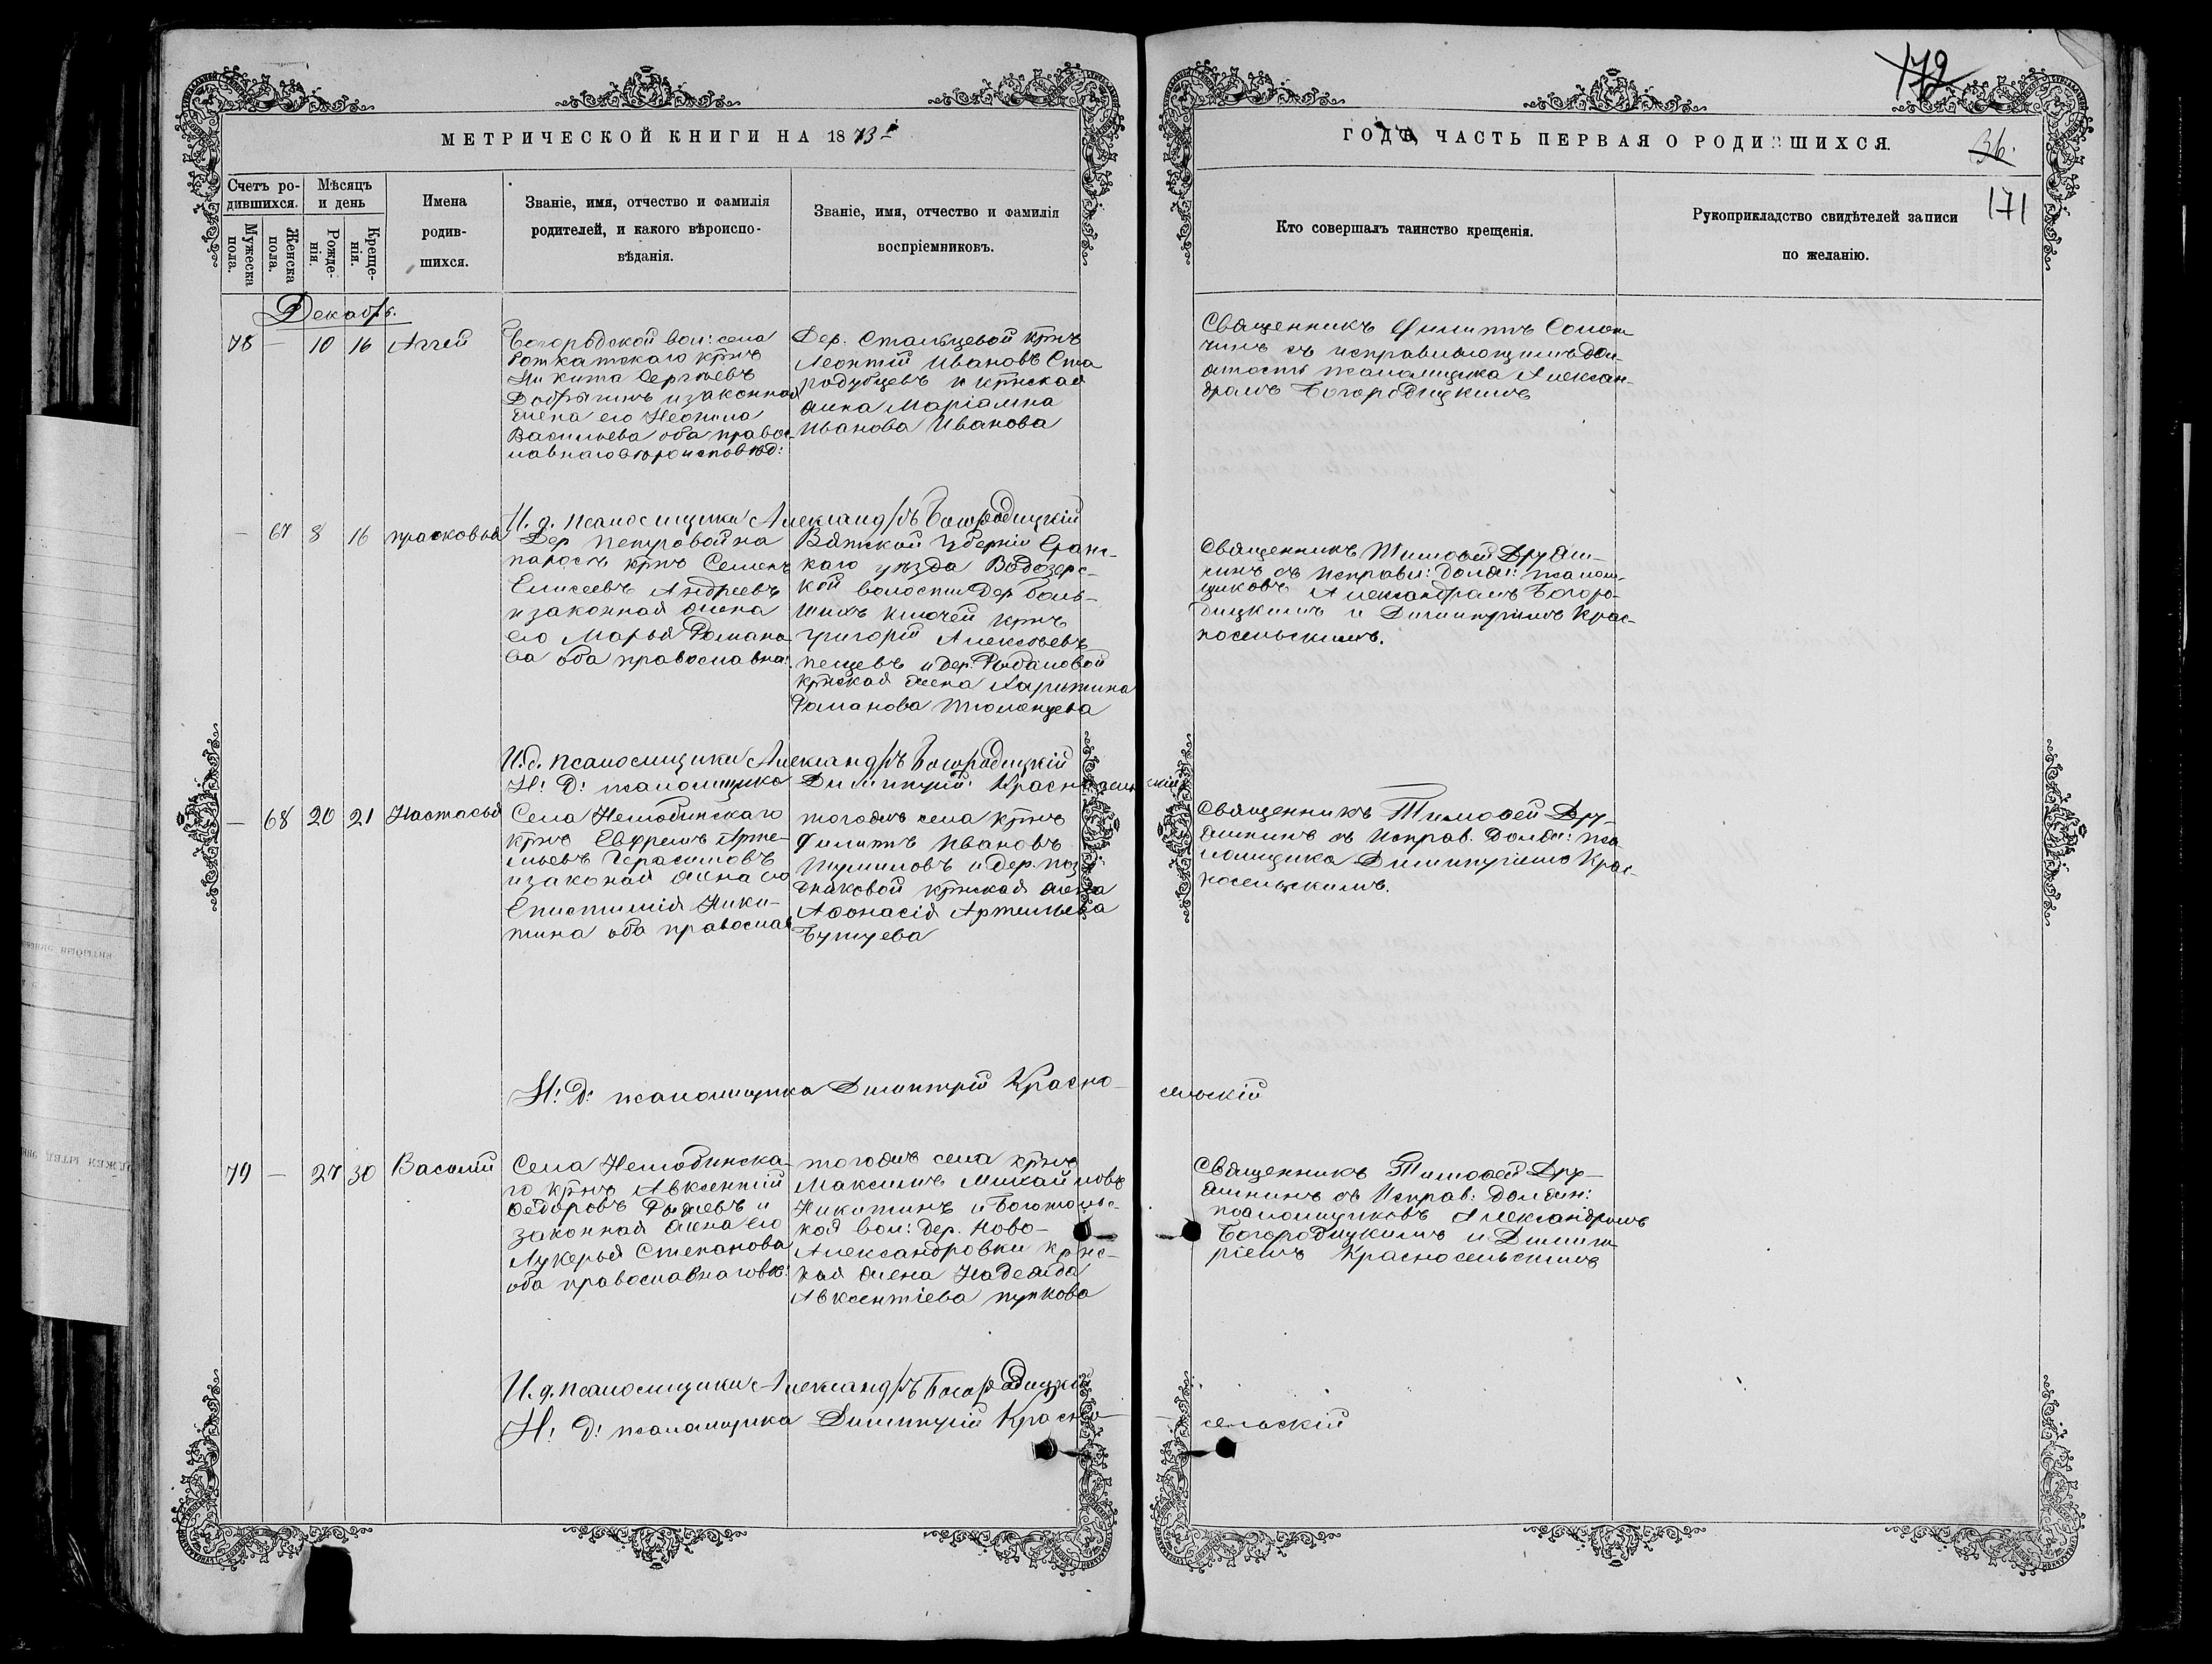 172
МЕТРИЧЕСКОЙ КНИГИ НА 1873
ГОДЪ, ЧАСТЬ ПЕРВАЯ О РОДИВШИХСЯ.
36.
171
Счетъ ро-
дившихся.
Мужеска
пола.
Женска
пола.
Мѣсяцъ
и день
Рожде-
нія.
Креще-
нія.
Имена
родив-
шихся.
Званіе, имя, отчество и фамилія
родителей, и какого вѣроиспо-
вѣданія.
Званіе, имя, отчество и фамилія
воспріемниковъ.
Кто совершалъ таинство крещенія.
Рукоприкладство свидѣтелей записи
по желанію.
Декабрь.
78 — 10 16 Аггей
вол: села
крнъ
Никита Сергѣевъ
Добрынинъ и законная
жена его Неонила
Васильева оба правос-
лавнаго вѣроисповѣд:
Дер. Стальцевой крнъ
Леонтій Ивановъ Ста
родубцевъ и крнская
жена Маріамна
Иванова Иванова
Священникъ Филиппъ
съ исправляющимъ дол-
жность псаломщика Алексан-
дромъ Богородицкимъ
И. д. псаломщика Александръ Богородицкій
— 67 8 16 Прасковья
Дер Петровой на
крнъ Семенъ
Елисеевъ Андреевъ
и законная жена
его Марья Романо-
ва оба православна:
Вятской губерніи Яранс-
каго уѣзда Водозерс-
кой волости дер боль-
шихъ ключей крнъ
Григорій Алексѣевъ
и дер.
крнская жена Харитина
Романова Тюменцева
Священникъ Тимофей Дру
жининъ съ исправл: долж: псалом-
щиковъ Александромъ Богоро-
дицкимъ и Димитріемъ Крас-
носельскимъ.
И. д. псаломщика Александръ Богородицкій
И: Д: псаломщика Димитрій Красносельскій
— 68 20 21 Настасья
Села Нелюбинскаго
крнъ Ефремъ Арте-
мьевъ Герасимовъ
и законая жена его
Епистимія Ники-
тина оба православ
тогожъ села крнъ
Филиппъ Ивановъ
и дер.
крнская жена
Афонасія Артемьева
Бутуева
Священникъ Тимофей Дру-
жининъ съ Исправ. долж: пса
ломщика Димитріемъ Крас-
носельскимъ.
И: Д: псаломщика Димитрій Красно-
сельскій
79 — 27 30 Василій
Села Нелюбинска-
го крнъ Авксентій
Ѳедоровъ и
законная жена его
Лукерья Степанова
оба православнаго вѣ:
тогожъ села крнъ
Максимъ Михайловъ
Никитинъ и Боготоль-
кая вол: дер. Ново-
Александровки крнс-
кая жена Надежда
Авксентіева
Священникъ Тимофей Дру-
жининъ съ Исправ: должн:
псаломщиковъ Александромъ
Богородицкимъ и Димит-
ріемъ Красносельскимъ
И. д. псаломщика Александръ Богородицкій
И: Д: псаломщика Димитрій Красно-
сельскій